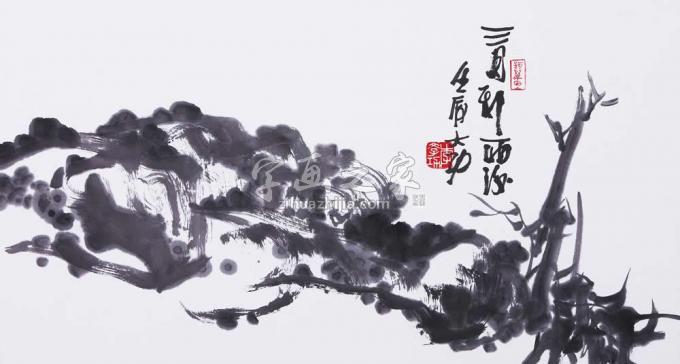 三月新雨後
壬辰大功
字画之家
zihuazhijia.com